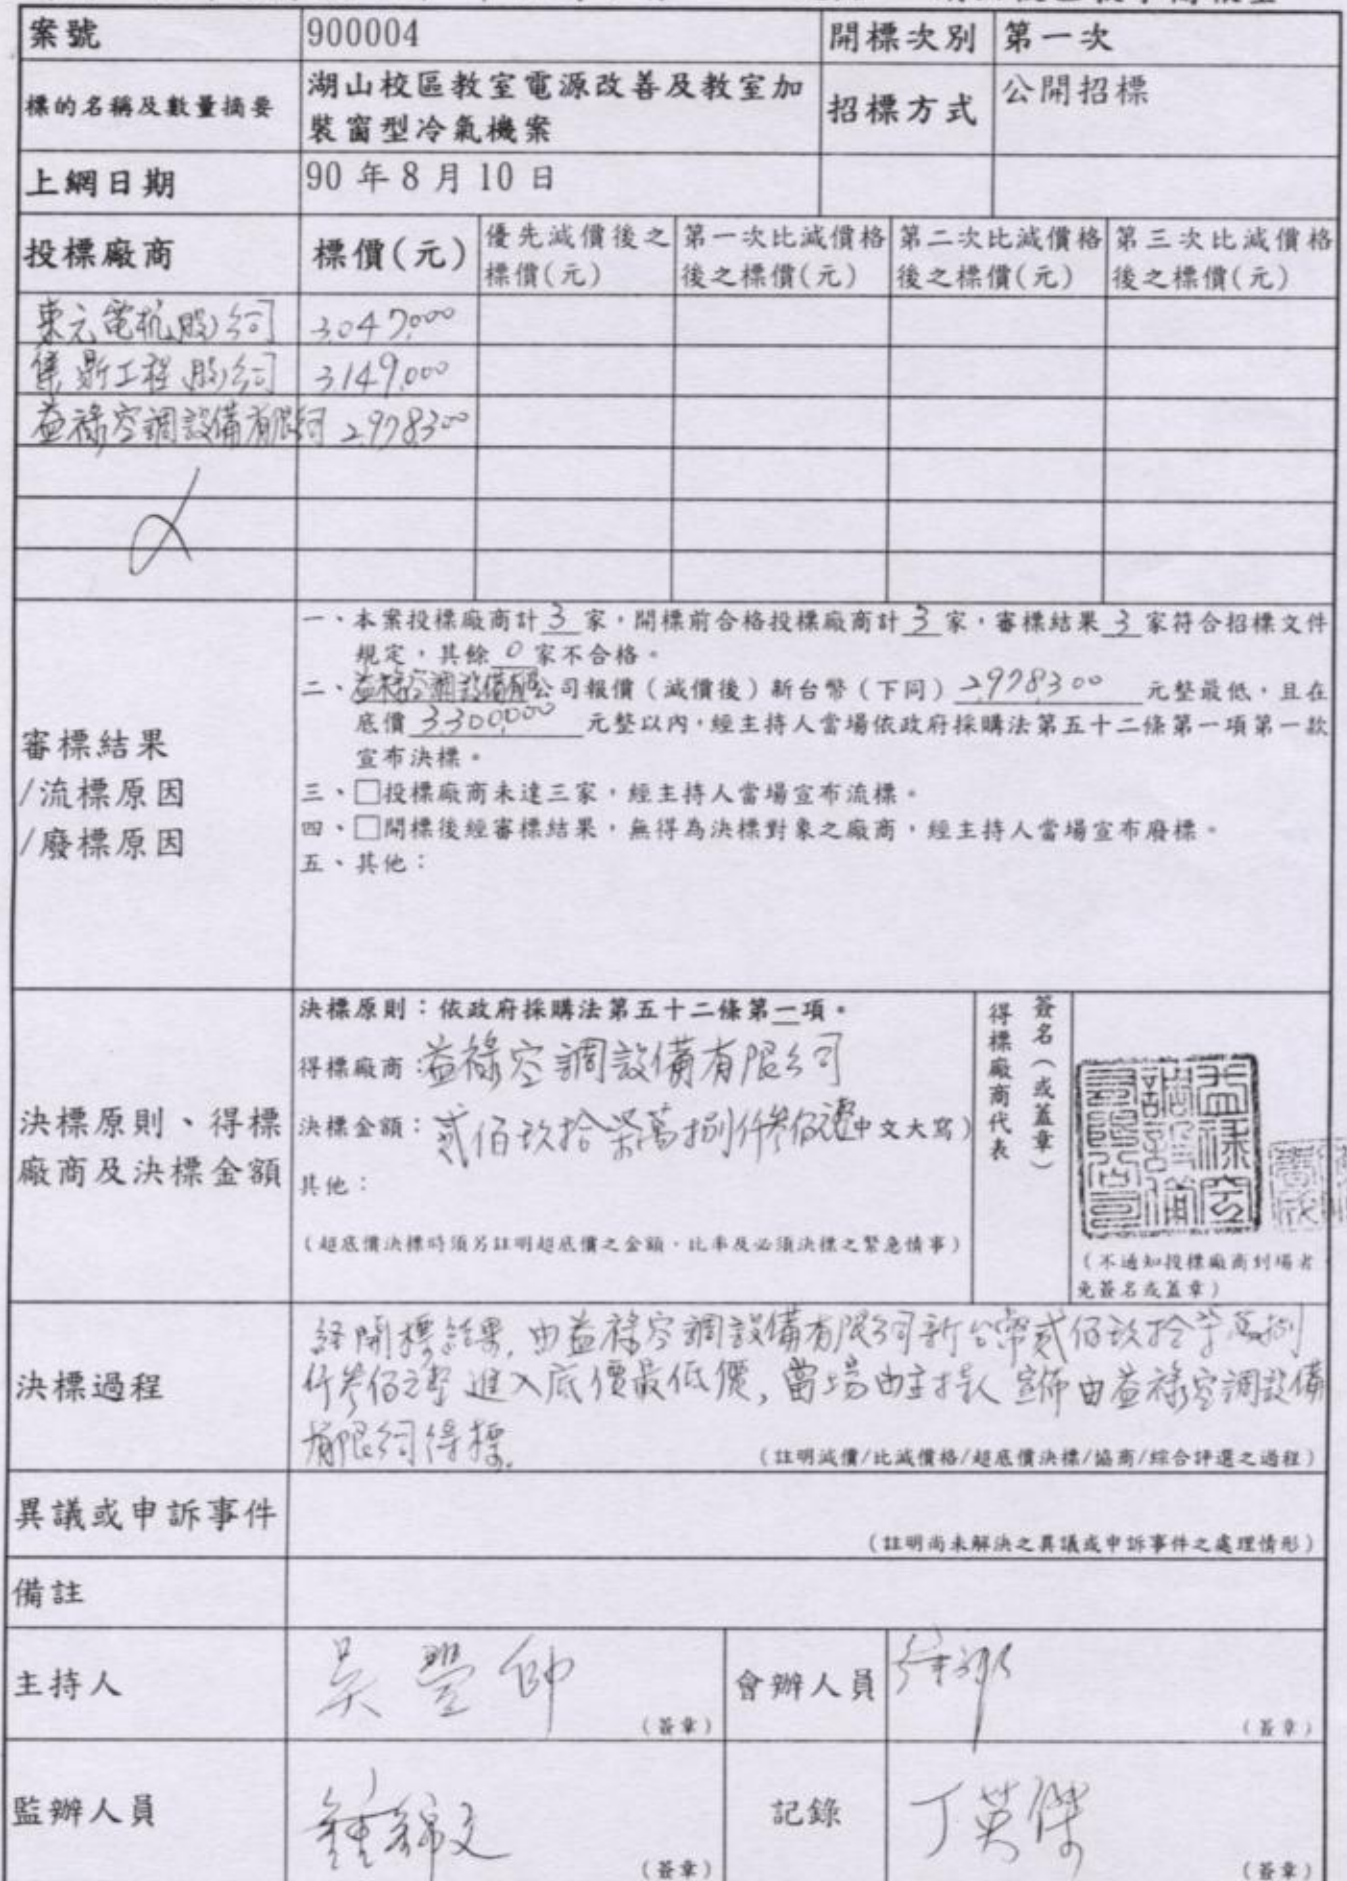 案號 900004 開標次別 第一次
標的名稱及數量摘要 湖山校區教室電源改善及教室加
裝窗型冷氣機案 招標方式 公開招標
上網日期 90 年 8 月 10 日
投標廠商 標價(元) 優先減價後之
標價(元) 第一次比減價格
後之標價(元) 第二次比減價格
後之標價(元) 第三次比減價格
後之標價(元)
東元電机股)公司 3047000
集鼎工程股)公司 3149000
益祿空調設備有限公司 2978300
審標結果
/流標原因
/廢標原因
一、本案投標廠商計 3 家,開標前合格投標廠商計 3 家,審標結果 3 家符合招標文件
規定,其餘 0 家不合格。
二、益祿空調設備有限公司報價(減價後)新台幣(下同) 2978300 元整最低,且在
底價 3300000 元整以內,經主持人當場依政府採購法第五十二條第一項第一款
宣布決標。
三、□投標廠商未達三家,經主持人當場宣布流標。
四、□開標後經審標結果,無得為決標對象之廠商,經主持人當場宣布廢標。
五、其他:
決標原則、得標
廠商及決標金額
決標原則:依政府採購法第五十二條第一項。
得標廠商:益祿空調設備有限公司
決標金額:貳佰玖拾柒萬捌仟參佰元整中文大寫)
其他:
(超底價決標時須另註明超底價之金額、比率及必須決標之緊急情事)
得標廠商代表
簽名(或蓋章)
益祿空調設備有限公司
(不通知投標廠商到場者
免簽名或蓋章)
決標過程
經開標結果,由益祿空調設備有限公司新台幣貳佰玖拾柒萬捌
仟參佰元整進入底價最低價,當場由主持人宣佈由益祿空調設備
有限公司得標.
(註明減價/比減價格/超底價決標/協商/綜合評選之過程)
異議或申訴事件
(註明尚未解決之異議或申訴事件之處理情形)
備註
主持人 吳豐帥 (簽章) 會辦人員 (簽章)
監辦人員 鍾錦文 (簽章) 記錄 丁英傑 (簽章)